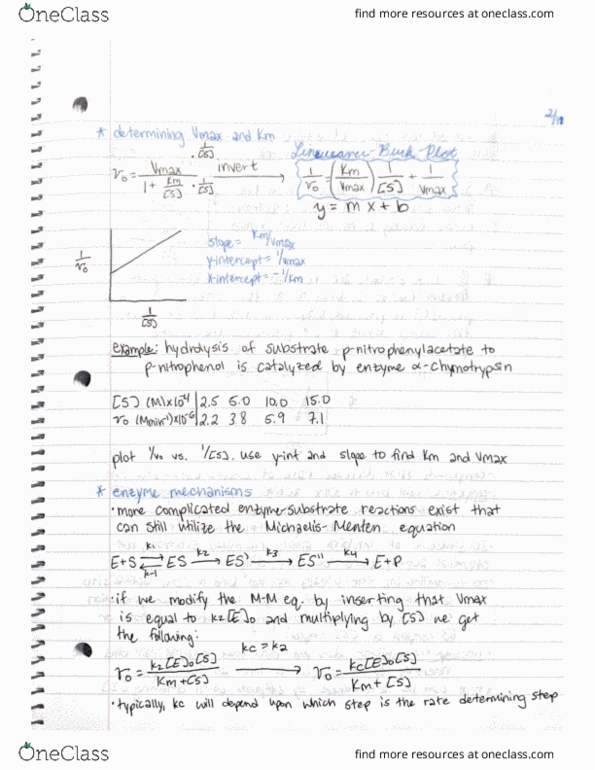 OneClass
find more resources at oneclass.com
2/11
* determining Vmax and Km
r₀ = Vmax / (1 + Km/[S]) · 1/[S] / · 1/[S] invert → 1/r₀ = (Km/Vmax) 1/[S] + 1/Vmax
Lineweaver-Burk Plot
y = m x + b
1/r₀
1/[S]
slope = Km/Vmax
y-intercept = 1/Vmax
x-intercept = -1/Km
example: hydrolysis of substrate p-nitrophenylacetate to
p-nitrophenol is catalyzed by enzyme α-chymotrypsin
[S] (M)×10⁴ | 2.5 5.0 10.0 15.0
r₀ (Mmin⁻¹)×10⁻⁶ | 2.2 3.8 5.9 7.1
plot 1/r₀ vs. 1/[S]. use y-int and slope to find Km and Vmax
* enzyme mechanisms
• more complicated enzyme-substrate reactions exist that
can still utilize the Michaelis-Menten equation
E+S ⇌ ES → ES' → ES'' → E+P
k₁ k₋₁ k₂ k₃ k₄
• if we modify the M-M eq. by inserting that Vmax
is equal to k₂[E]₀ and multiplying by [S] we get
the following:
r₀ = k₂[E]₀[S] / Km+[S] kc = k₂ → r₀ = kc[E]₀[S] / Km+[S]
• typically, kc will depend upon which step is the rate determining step
OneClass
find more resources at oneclass.com